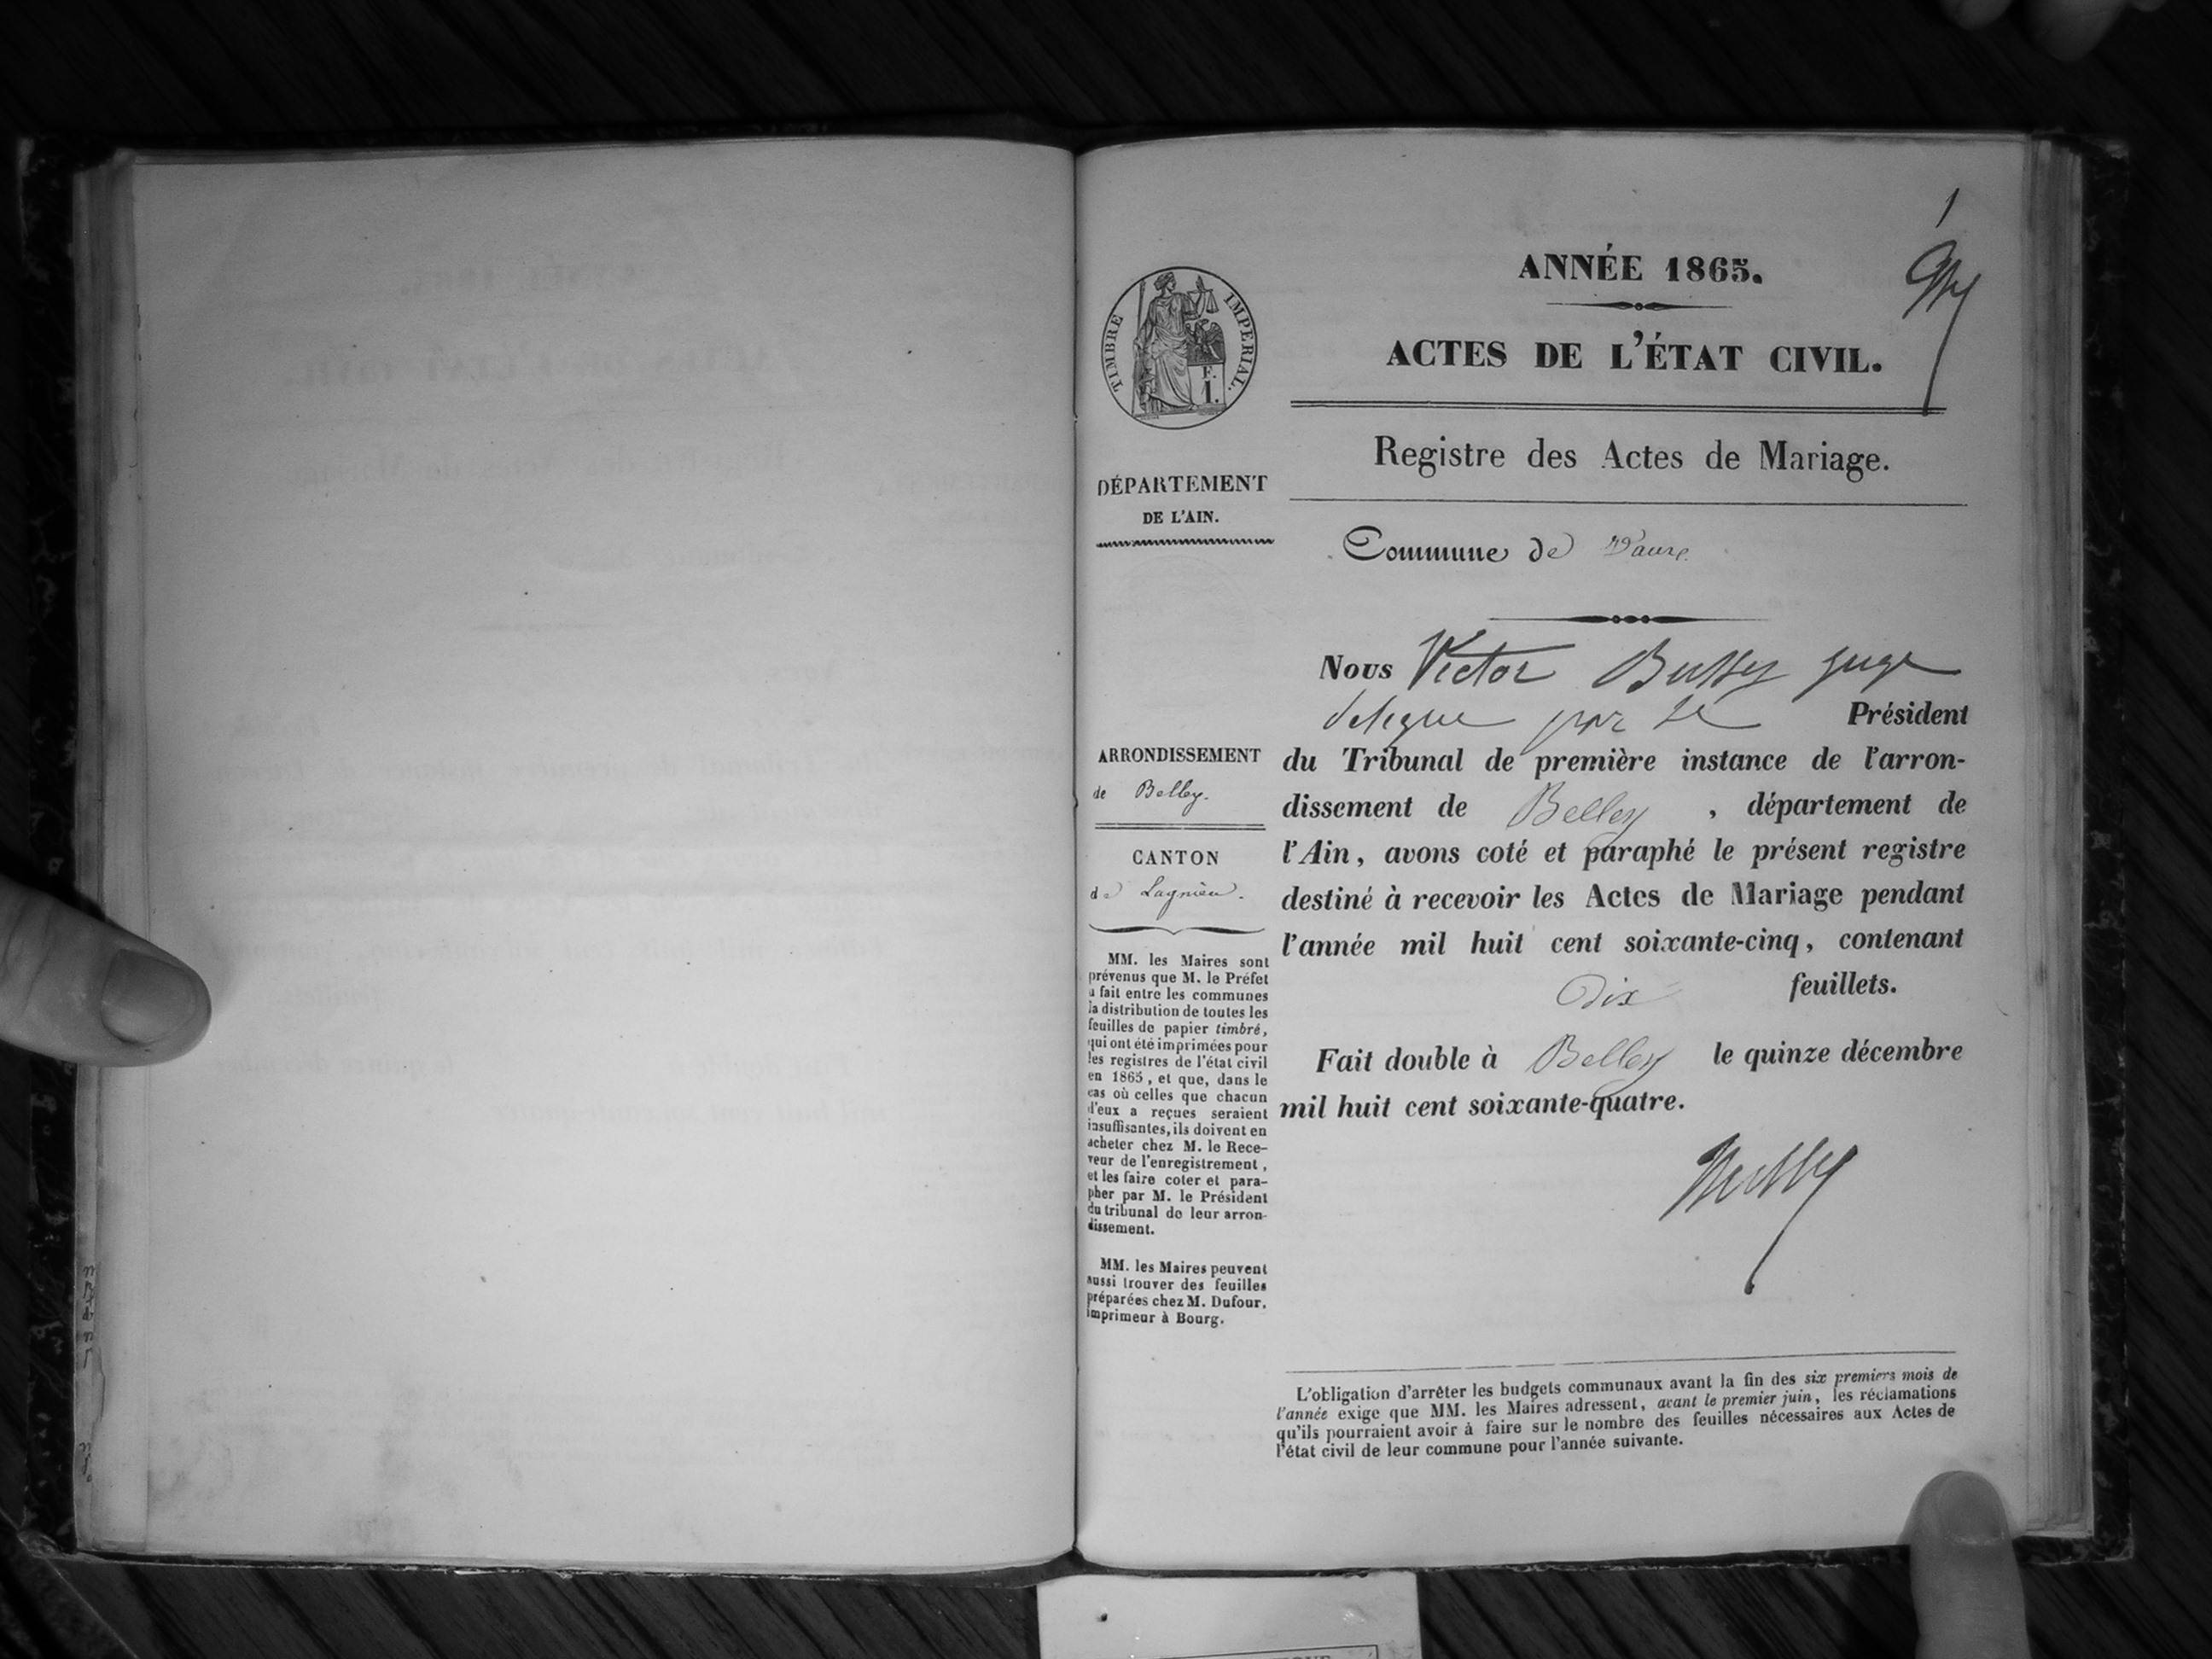 1
ANNÉE 1865.
ACTES DE L'ÉTAT CIVIL.
Registre des Actes de Mariage.
TIMBRE IMPÉRIAL.
F.
1.
DÉPARTEMENT
DE L'AIN.
Commune de Vaux
ARRONDISSEMENT
de Belley.
CANTON
de Lagnieu.
MM. les Maires sont
prévenus que M. le Préfet
a fait entre les communes
la distribution de toutes les
feuilles de papier timbré,
qui ont été imprimées pour
les registres de l'état civil
en 1865, et que, dans le
cas où celles que chacun
d'eux a reçues seraient
insuffisantes, ils doivent en
acheter chez M. le Rece-
veur de l'enregistrement,
et les faire coter et para-
pher par M. le Président
du tribunal de leur arron-
dissement.
MM. les Maires peuvent
aussi trouver des feuilles
préparées chez M. Dufour,
imprimeur à Bourg.
Nous Victor Bussy juge
delegue par le Président
du Tribunal de première instance de l'arron-
dissement de Belley, département de
l'Ain, avons coté et paraphé le présent registre
destiné à recevoir les Actes de Mariage pendant
l'année mil huit cent soixante-cinq, contenant
Dix feuillets.
Fait double à Belley le quinze décembre
mil huit cent soixante-quatre.
Bussy
L'obligation d'arrêter les budgets communaux avant la fin des six premiers mois de
l'année exige que MM. les Maires adressent, avant le premier juin, les réclamations
qu'ils pourraient avoir à faire sur le nombre des feuilles nécessaires aux Actes de
l'état civil de leur commune pour l'année suivante.